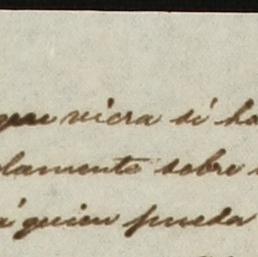 que viera si ha
lamente sobre
á quien pueda